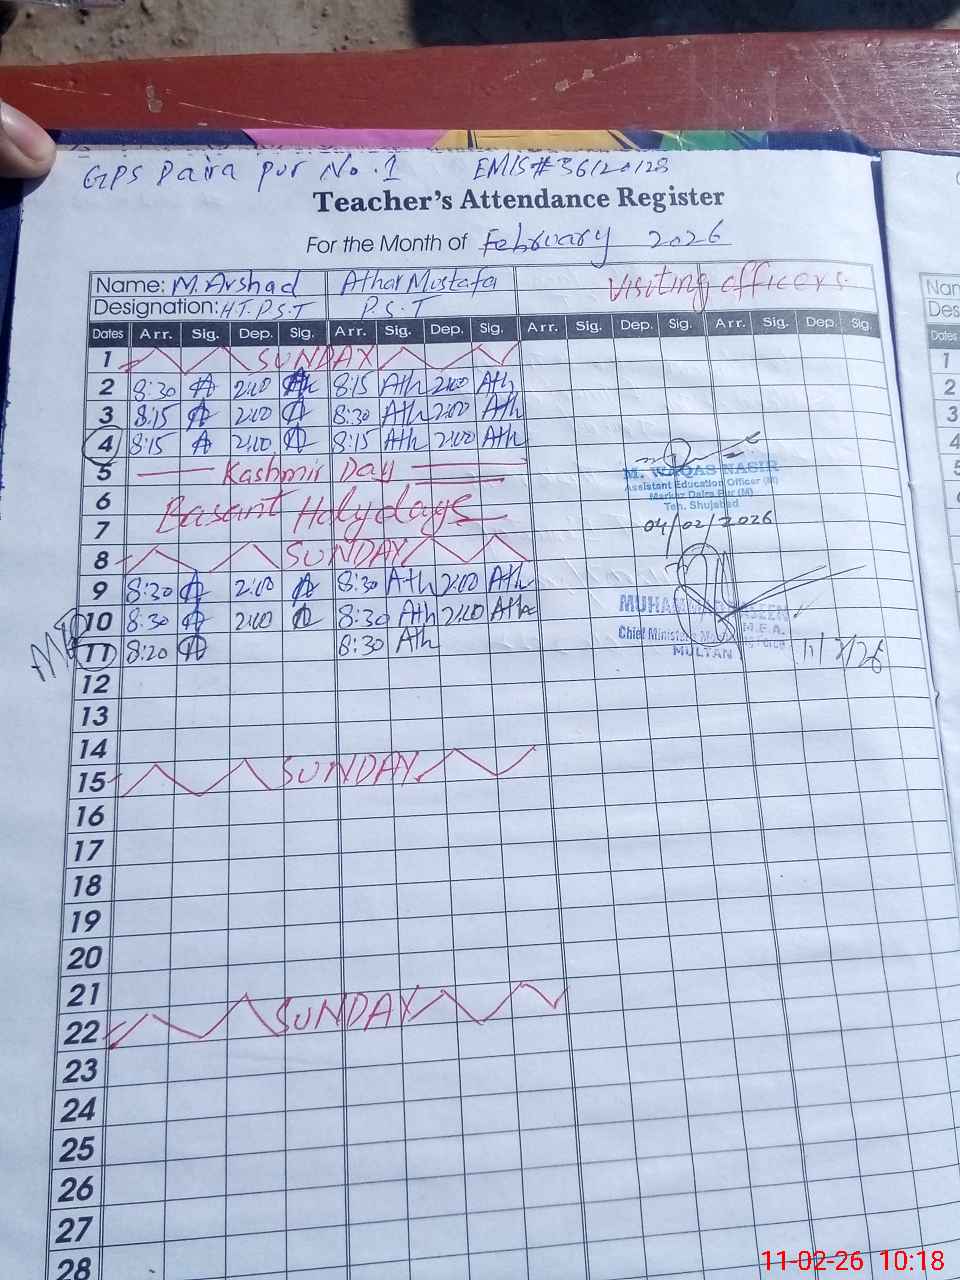 GPS Daira pur No.1 EMIS# 36120128
Teacher's Attendance Register
For the Month of February 2026
Name: M. Arshad Athar Mustafa Visiting officers.
Designation: H.T. P.S.T P.S.T
Dates Arr. Sig. Dep. Sig. Arr. Sig. Dep. Sig. Arr. Sig. Dep. Sig. Arr. Sig. Dep. Sig.
1 SUNDAY
2 8:30 A 2:00 Ath 8:15 Ath 2:00 Ath
3 8:15 A 2:00 A 8:30 Ath 2:00 Ath
4 8:15 A 2:00 A 8:15 Ath 2:00 Ath
5 Kashmir Day
M. WAQAS NASIR
Assistant Education Officer (M)
Markaz Daira Pur (M)
Teh. Shujabad
04/02/2026
6 Basant Holydays
7
8 SUNDAY
9 8:30 A 2:00 A 8:30 Ath 2:00 Ath
10 8:30 A 2:00 A 8:30 Ath 2:00 Ath
MUHAMMAD
M.E.A.
Chief Minister
MULTAN
11/2/26
11 8:20 A 8:30 Ath
12
13
14
15 SUNDAY
16
17
18
19
20
21
22 SUNDAY
23
24
25
26
27
28
Dates
1
2
3
4
5
11-02-26 10:18